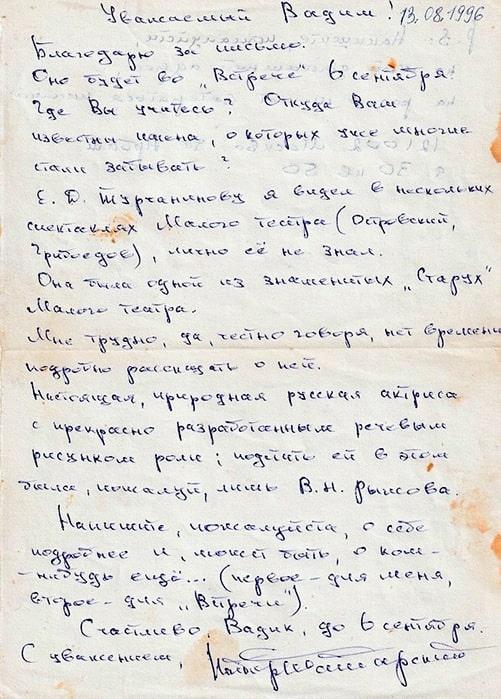 Уважаемый Вадим! 13.08.1996
Благодарю за письмо.
Оно будет во „Встрече" 6 сентября
Где Вы учитесь? Откуда Вам
известны имена, о которых уже многие
стали забывать?
Е. Д. Турчанинову я видел в нескольких
спектаклях Малого театра (Островский,
Грибоедов), лично её не знал.
Она была одной из знаменитых „Старух"
Малого театра.
Мне трудно, да, честно говоря, нет времени
подробно рассказать о ней.
Настоящая, природная русская актриса
с прекрасно разработанным речевым
рисунком роли; подстать ей в этом
была, пожалуй, лишь В. Н. Рыжова.
Напишите, пожалуйста, о себе
подробнее и, может быть, о ком-
-нибудь ещё... (первое - для меня,
второе - для „Встречи").
Счастливо, Вадик, до 6 сентября.
С уважением,